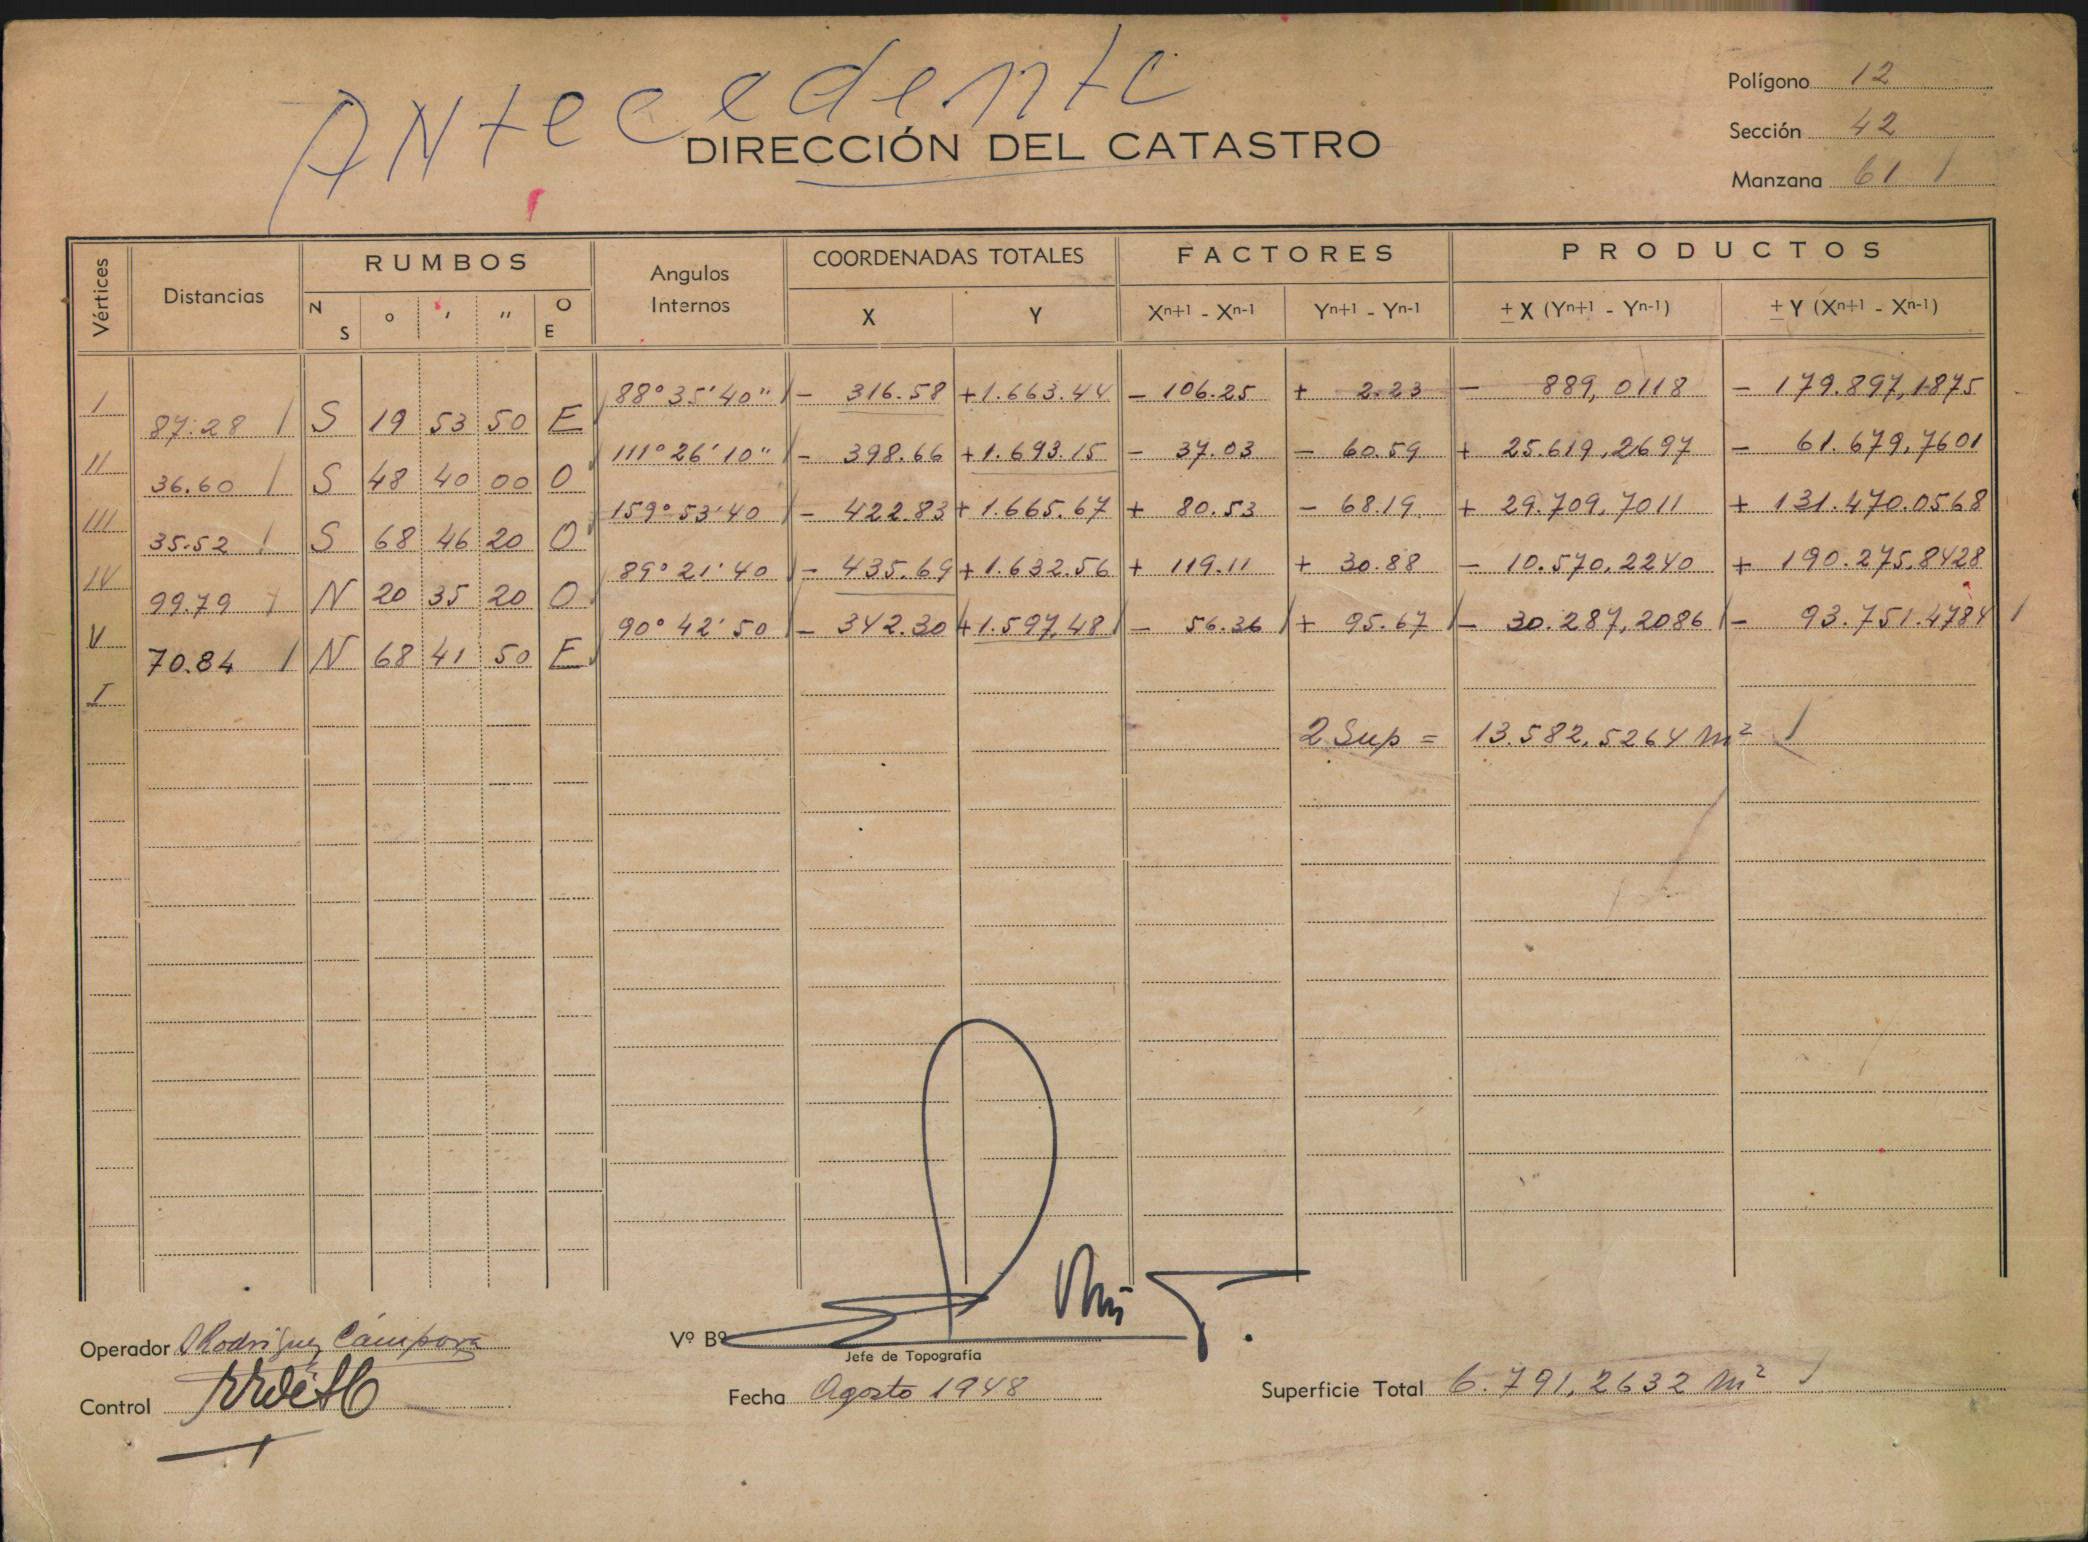 Antecedente
DIRECCIÓN DEL CATASTRO
Polígono 12
Sección 42
Manzana 61
Vértices Distancias RUMBOS Angulos Internos COORDENADAS TOTALES FACTORES PRODUCTOS
N S ° ' " O E X Y Xn+1 - Xn-1 Yn+1 - Yn-1 ± X (Yn+1 - Yn-1) ± Y (Xn+1 - Xn-1)
I 88° 35' 40" - 316.58 +1.663.44 - 106.25 + 2.23 - 889,0118 - 179.897,1875
87.28 S 19 53 50 E
II 111° 26' 10" - 398.66 +1.693.15 - 37.03 - 60.59 + 25.619,2697 - 61.679,7601
36.60 S 48 40 00 O
III 159° 53' 40 - 422.83 + 1.665.67 + 80.53 - 68.19 + 29.709,7011 + 131.470.0568
35.52 S 68 46 20 O
IV 89° 21' 40 - 435.69 +1.632.56 + 119.11 + 30.88 - 10.570,2240 + 190.275,8428
99.79 N 20 35 20 O
V 90° 42' 50 - 342.30 +1.597,48 - 56.36 + 95.67 - 30.287,2086 - 93.751.4784
70.84 N 68 41 50 E
I
2 Sup = 13.582,5264 m²
Operador Rodriguez Cámpora
Control
Vº Bº
Jefe de Topografía
Fecha Agosto 1948
Superficie Total 6.791,2632 m²